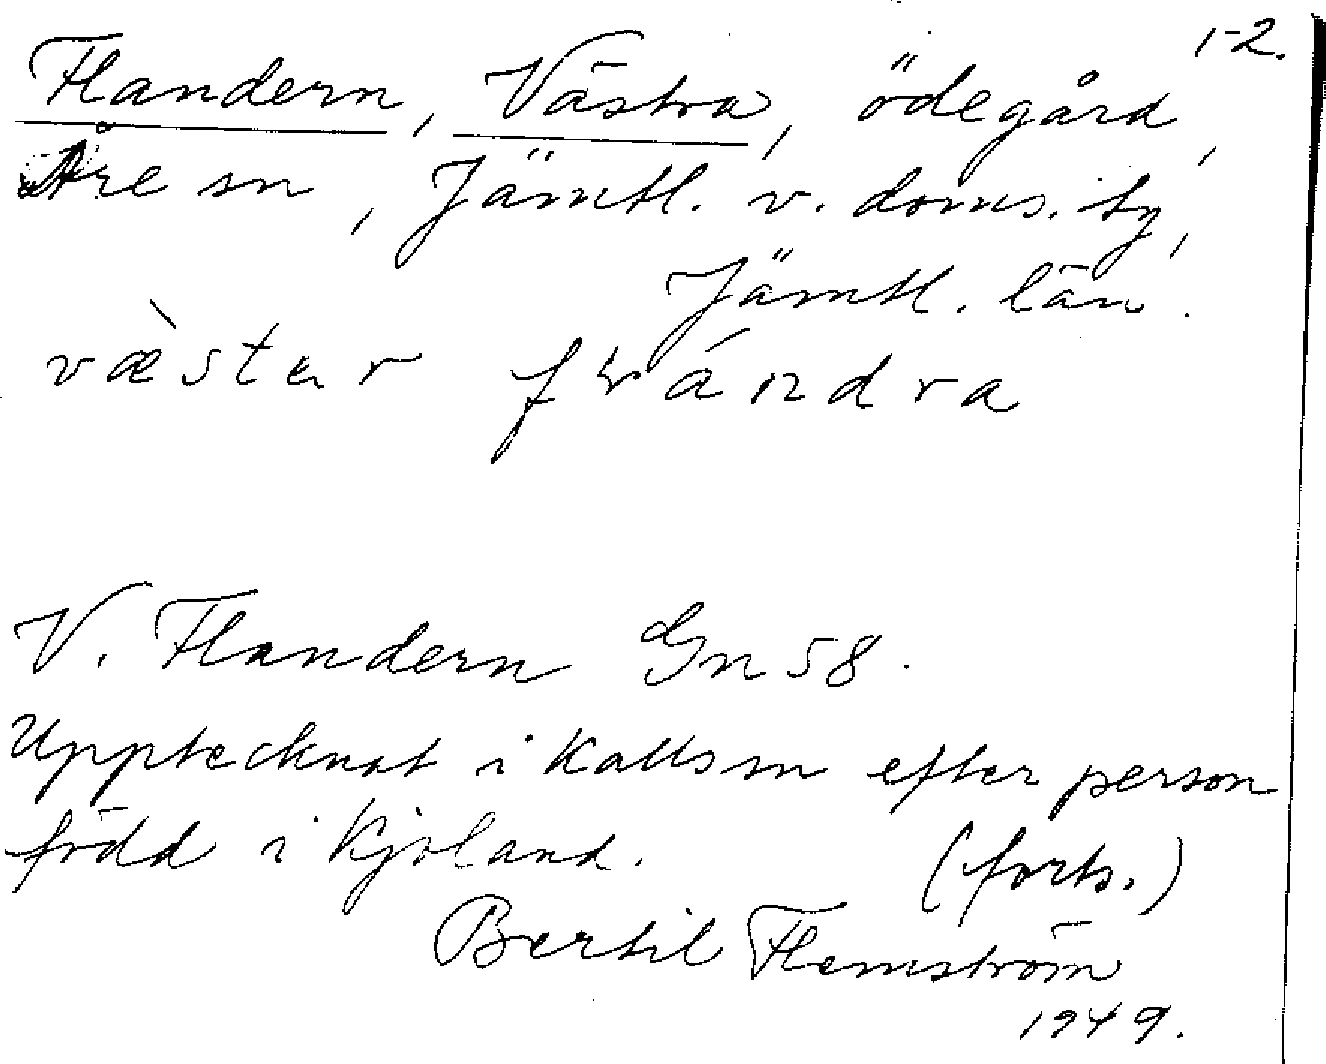 1-2.
Flandern, Västra, ödegård,
Åre sn, Jämtl. v. doms. tg,
Jämtl. län.
væ̀star
V. Flandern Gn 58.
Upptecknat i Kalls sn efter person
född i Kjoland. (forts.)
Bertil Flemström
1949.